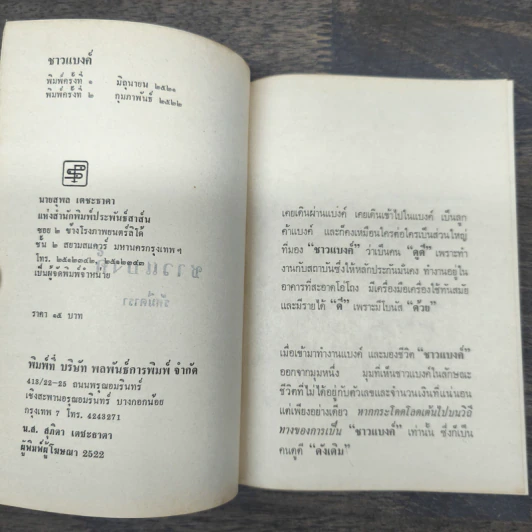 ชาวแบงค์
พิมพ์ครั้งที่ ๑ มิถุนายน ๒๕๒๑
พิมพ์ครั้งที่ ๒ กุมภาพันธ์ ๒๕๒๒
นายสุพล เตชะธาดา
แห่งสำนักพิมพ์ประพันธ์สาส์น
ซอย ๒ ข้างโรงภาพยนตร์ลิโด้
ชั้น ๒ สยามสแควร์ มหานครกรุงเทพฯ
โทร. ๒๕๑๒๓๔๒, ๒๕๑๒๓๔๓
เป็นผู้จัดพิมพ์จำหน่าย
ราคา ๑๕ บาท
พิมพ์ที่ บริษัท พลพันธ์การพิมพ์ จำกัด
413/22-25 ถนนพรุณอมรินทร์
เชิงสะพานอรุณอมรินทร์ บางกอกน้อย
กรุงเทพ ฯ โทร. 4243271
น.ส. สุภิดา เตชะธาดา
ผู้พิมพ์ผู้โฆษณา 2522
เคยเดินผ่านแบงค์ เคยเดินเข้าไปในแบงค์ เป็นลูก
ค้าแบงค์ และก็คงเหมือนใครต่อใครเป็นส่วนใหญ่
ที่มอง "ชาวแบงค์" ว่าเป็นคน "ดูดี" เพราะทำ
งานกับสถาบันซึ่งให้หลักประกันมั่นคง ทำงานอยู่ใน
อาคารที่สะอาดโอ่โถง มีเครื่องมือเครื่องใช้ทันสมัย
และมีรายได้ "ดี" เพราะมีโบนัส "ด้วย"
เมื่อเข้ามาทำงานแบงค์ และมองชีวิต "ชาวแบงค์"
ออกจากมุมหนึ่ง มุมที่เห็นชาวแบงค์ในลักษณะ
ชีวิตที่ไม่ได้อยู่กับตัวเลขและจำนวนเงินที่แน่นอน
แต่เพียงอย่างเดียว หากกระโดดโลดเต้นไปบนวิถี
ทางของการเป็น "ชาวแบงค์" เท่านั้น ซึ่งก็เป็น
คนดูดี "ดังเดิม"